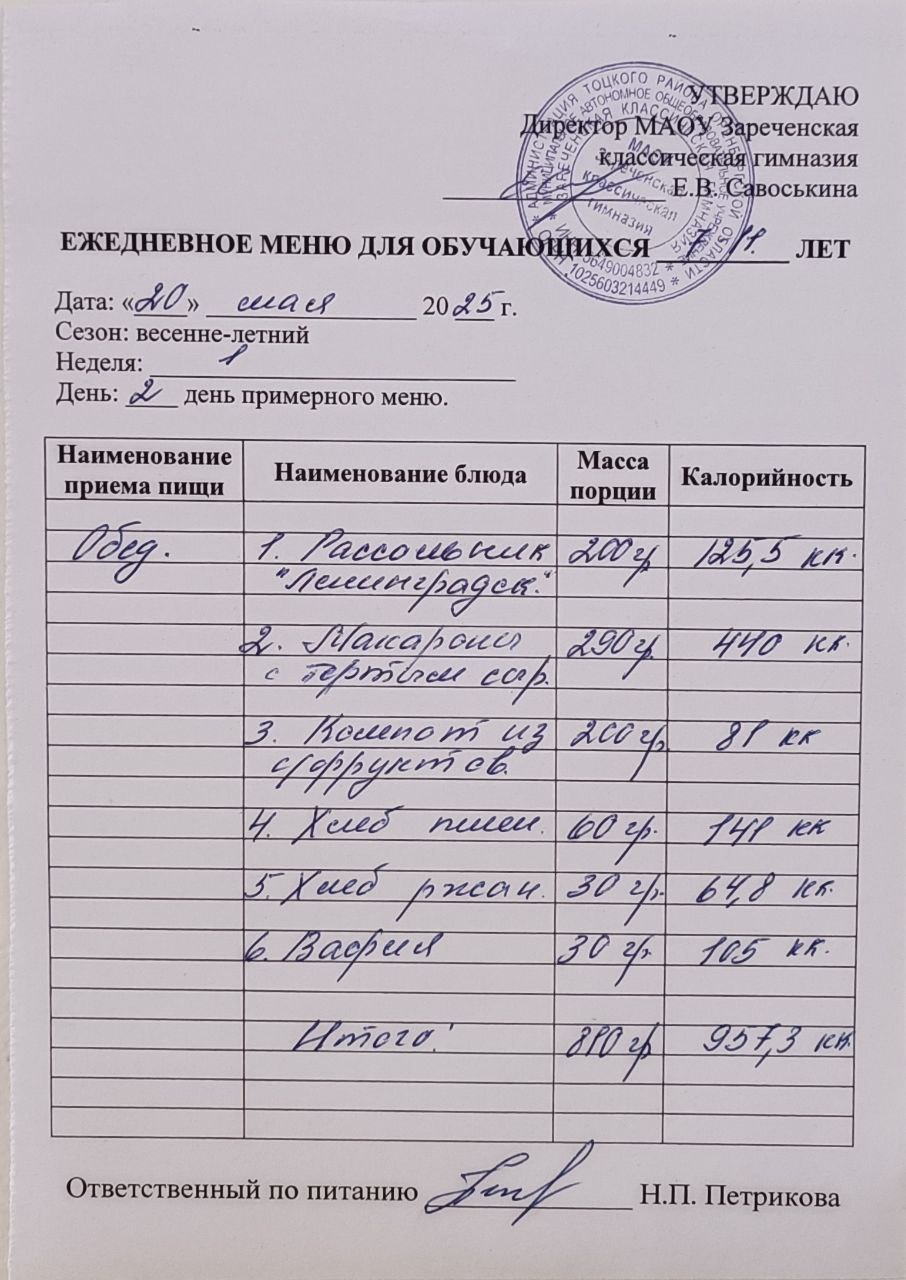 УТВЕРЖДАЮ
Директор МАОУ Зареченская
классическая гимназия
Е.В. Савоськина
АДМИНИСТРАЦИЯ ТОЦКОГО РАЙОНА ОРЕНБУРГСКОЙ ОБЛАСТИ
МУНИЦИПАЛЬНОЕ АВТОНОМНОЕ ОБЩЕОБРАЗОВАТЕЛЬНОЕ УЧРЕЖДЕНИЕ
ЗАРЕЧЕНСКАЯ КЛАССИЧЕСКАЯ ГИМНАЗИЯ
МАОУ
Зареченская
классическая
гимназия
1025603214449
ЕЖЕДНЕВНОЕ МЕНЮ ДЛЯ ОБУЧАЮЩИХСЯ 11. ЛЕТ
Дата: «20» мая 2025 г.
Сезон: весенне-летний
Неделя: 1
День: 2 день примерного меню.
Наименование приема пищи Наименование блюда Масса порции Калорийность
Обед. 1. Рассольник 200 гр 125,5 кк.
"Ленинградск."
2. Макароны 290 гр. 440 кк.
с тертым сыр.
3. Компот из 200 гр. 81 кк
с/фруктов.
4. Хлеб пшен. 60 гр. 141 кк
5. Хлеб ржан. 30 гр. 64,8 кк.
6. Вафля 30 гр. 105 кк.
Итого: 810 гр 957,3 кк.
Ответственный по питанию Н.П. Петрикова